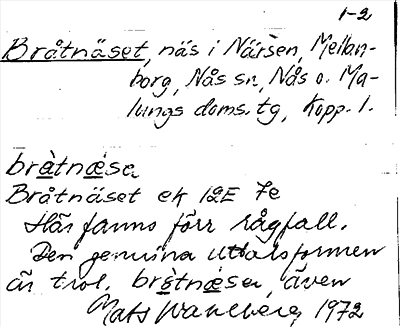 1-2
Bråtnäset, näs i Närsen, Mellan-
borg, Nås sn, Nås o. Ma-
lungs doms.tg, Kopp. l.
bràtnǽsa
Bråtnäset ek 12E 7e
Här fanns förr rågfall.
Den genuina uttalsformen
är trol. brètnǽsa, även
Mats Wahlberg, 1972